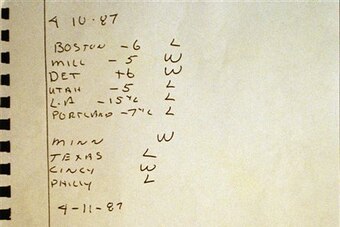 4 10-87
BOSTON -6 L
MILL -5 W
DET +6 W
UTAH -5 L
L.A -15½ L
PORTLAND -7½ L
MINN W
TEXAS L
CINCY W
PHILLY L
4-11-87